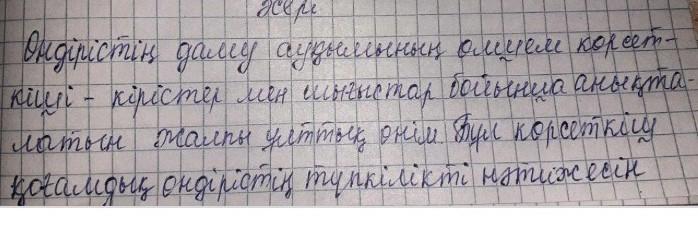 әсері
Өндірістің даму ауқымының өлшем көрсет-
кіші - кірістер мен шығыстар бойынша анықта
латын жалпы ұлттық өнім. Бұл көрсеткіш
қоғамдық өндірістің түпкілікті нәтижесін